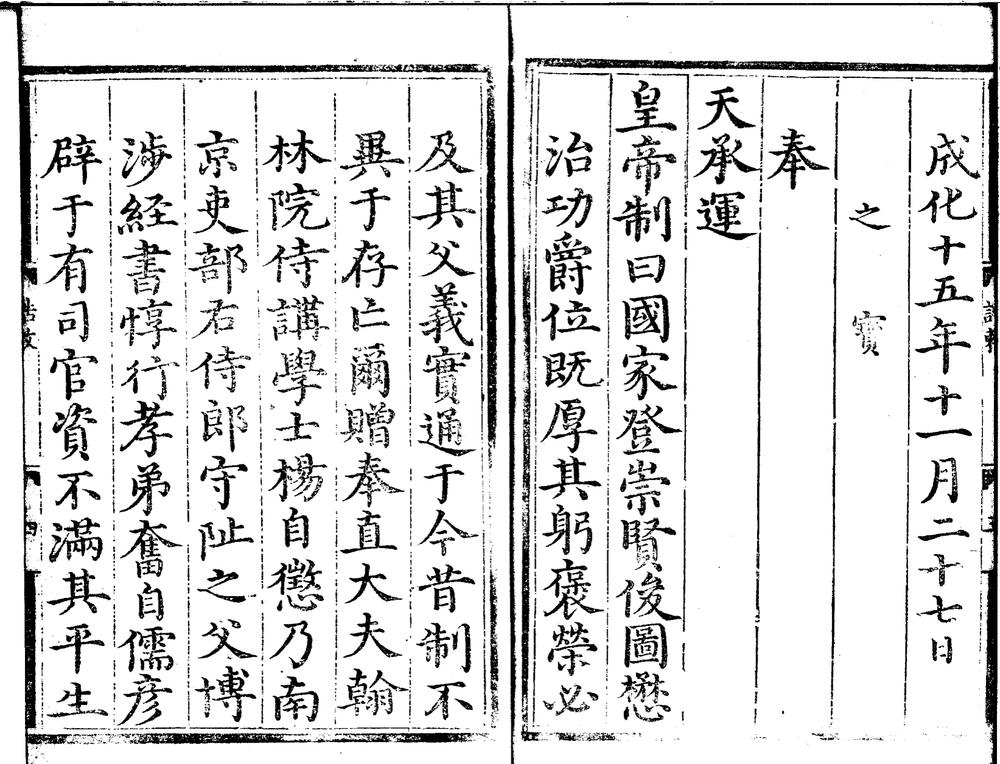 成化十五年十一月二十七日
之寶
奉
天承運
皇帝制曰國家登崇賢俊圖懋
治功爵位既厚其躬褒榮必
及其父義實通于今昔制不
異于存亡爾贈奉直大夫翰
林院侍講學士楊自懲乃南
京吏部右侍郎守阯之父博
涉經書惇行孝弟奮自儒彥
辟于有司官資不滿其平生